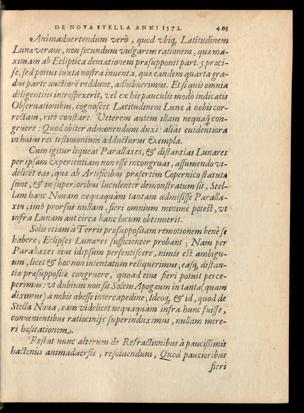 DE NOVA STELLA ANNI 1572. 405
Animaduertendum verò, quod vbiq; Latitudinem
Lunæ veram, non secundum vulgarem rationem, quæ ma-
ximam ab Ecliptica demotionem præsupponit part. 5 præci-
se, sed potius iuxta nostra inuenta, quæ eandem quarta gra-
du parte auctiorē reddunt, adhibuerimus. Et si quis omnia
diligentius introspexerit, vel ex his pauculis modò indicatis
Obseruationibus, cognoscet Latitudinem Lunæ à nobis cor-
rectam, ritè constare. Veterem autem illam nequaq́ con-
gruere: Quod obiter admonendum duxi: aliàs euidentiora
in huius rei testimonium adducturus Exempla.
Cum igitur liqueat Parallaxes, & distantias Lunares
per ipsam experientiam non esse incongruas, assumendo vi-
delicet eas, quæ ab Artificibus præsertim Copernico statutæ
sunt, & in superioribus luculenter demonstratum sit, Stel-
lam hanc Nouam nequaquàm tantam admisisse Paralla-
xin, imò prorsus nullam, fieri omnium minimè potest, vt
infra Lunam aut circa hanc locum obtinuerit.
Solis etiam à Terris præsuppositam remotionem benè se
habere, Eclipses Lunares sufficienter probant; Nam per
Parallaxes eius idipsum persentiscere, nimis est ambigu-
um, licet & hoc nos intentatum reliquerimus, easq; distan-
tiæ præsuppositæ congruere, quoad eius fieri potuit perce-
perimus: vt dubium non sit Solem Apogæum in tanta (quam
diximus) à nobis abesse intercapedine; Ideoq́, & id, quod de
Stella Noua, eam videlicet nequaquàm infra hunc fuisse,
conuenientibus ratiocinijs superinduximus, nullam mere-
ri hæsitationem.
Restat nunc alterum de Refractionibus à paucissimis
hactenus animaduersis, resoluendum, Quod paucioribus
fieri